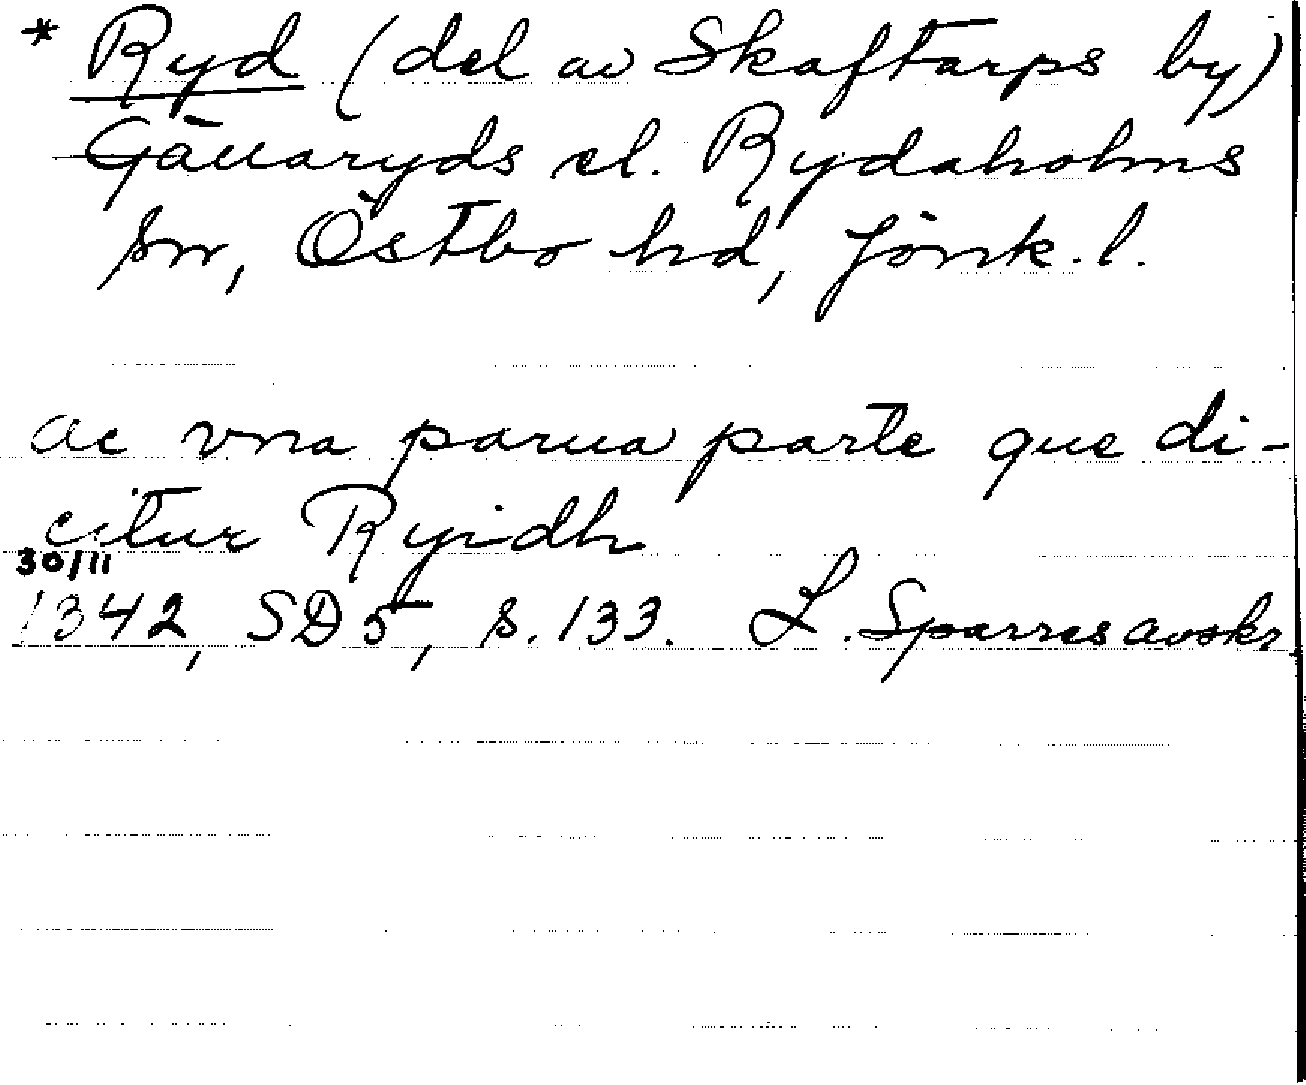 * Ryd (del av Skaftarps by)
Gällaryds el. Rydaholms
sn, Östbo hd, Jönk. l.
ac vna parua parte que di-
citur Ryidh
30/11
1342, SD 5, s. 133. L. Sparres avskr.